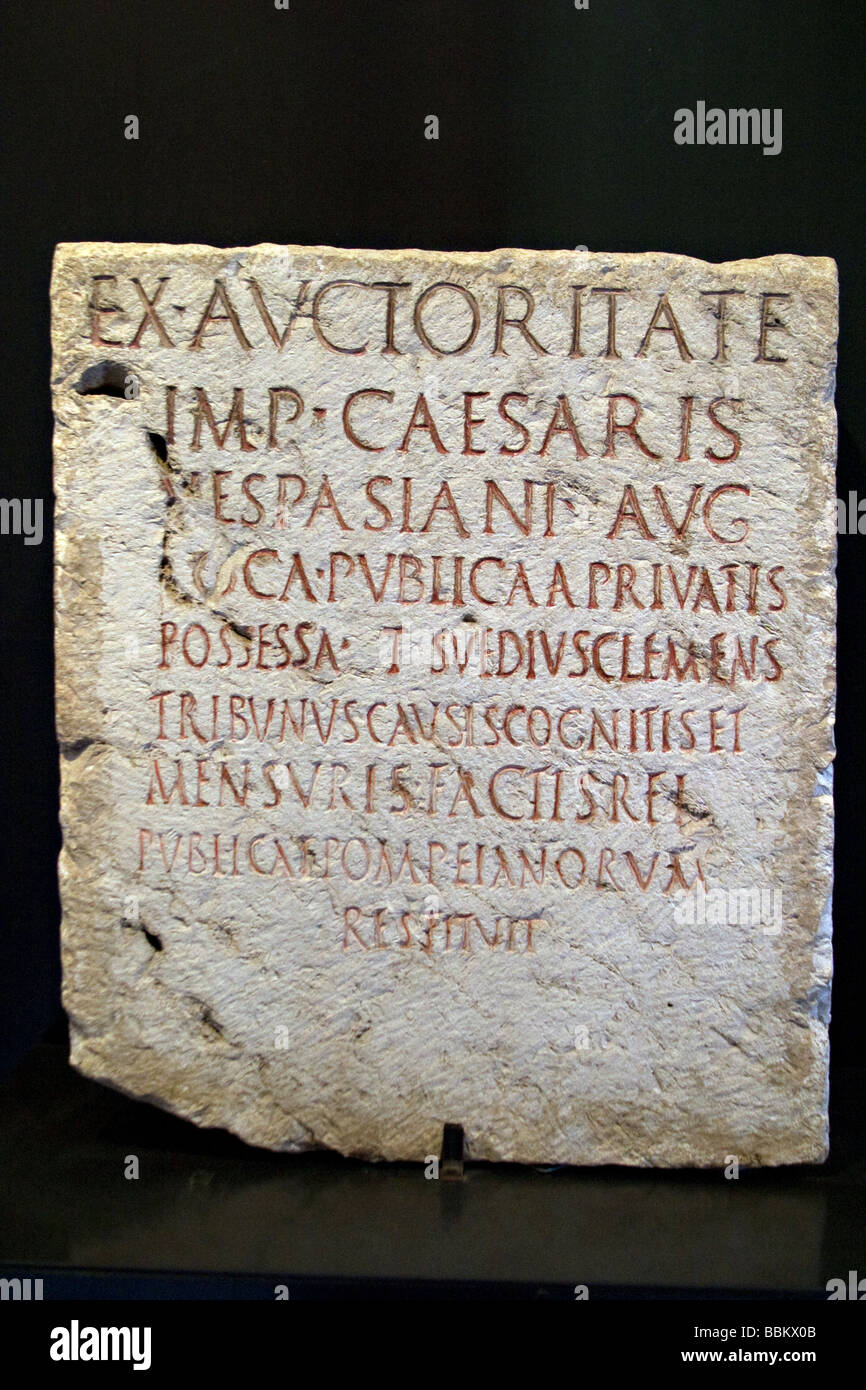 EX·AVCTORITATE
IMP·CAESARIS
VESPASIANI·AVG
LOCA·PVBLICA A PRIVATIS
POSSESSA· T SVEDIVS CLEMENS
TRIBVNVS CAVSIS COGNITIS ET
MENSVRIS·FACTIS REI
PVBLICAE POMPEIANORVM
RESTITVIT
alamy
Image ID: BBKX0B
www.alamy.com